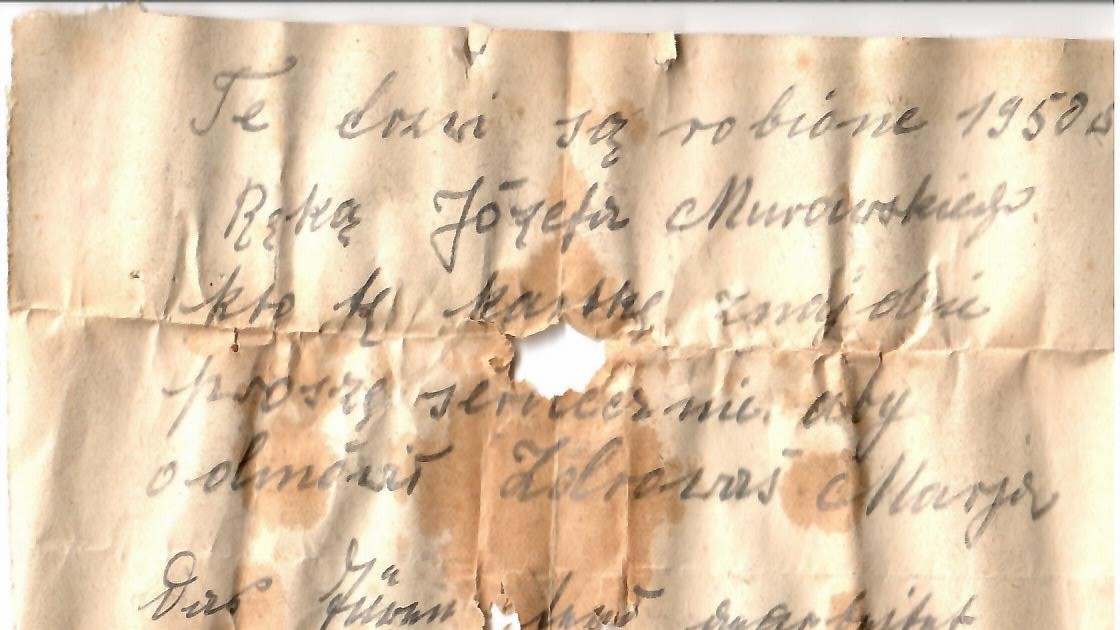 Te drzwi są robione 1950
Ręką Józefa Murawskiego
kto tę kartkę znajdzie
proszę serdecznie aby
odmówił Zdrowaś Marja
Das